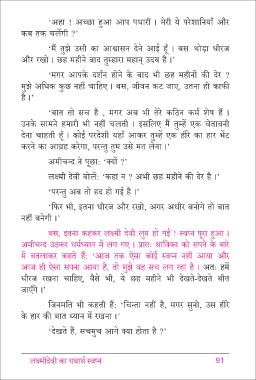 'अहा ! अच्छा हुआ आप पधारीं । मेरी ये परेशानियाँ और
कब तक चलेंगी ?'
'मैं तुझे उसी का आश्वासन देने आई हूँ । बस थोड़ा धीरज
और रखो । छह महीने बाद तुम्हारा महान् उदय है ।'
'मगर आपके दर्शन होने के बाद भी छह महीनों की देर ?
मुझे अधिक कुछ नहीं चाहिए । बस, जीवन कट जाए, उतना हो काफी
है ।'
'बात तो सच है , मगर अब भी तेरे कठिन कर्म शेष हैं ।
उनके सामने हमारी भी नहीं चलती । इसलिए मैं तुम्हें एक चेतावनी
देना चाहती हूँ । कोई परदेशी यहाँ आकर तुम्हें एक हीरे का हार भेंट
करने का आग्रह करेगा, परन्तु तुम उसे मत लेना ।'
अमीचन्द ने पूछा: 'क्यों ?'
लक्ष्मी देवी बोलें: 'कहा न ? अभी छह महीने की देर है ।'
'परन्तु अब तो हद हो गई है ।'
'फिर भी, इतना धीरज और रखो, अगर अधीर बनोगे तो बात
नहीं बनेगी ।'
बस, इतना कहकर लक्ष्मी देवी लुप्त हो गई ! स्वप्न पूरा हुआ ।
अमीचन्द उठकर धर्मध्यान में लग गए । प्रातः श्राविका को सपने के बारे
में बतलाकर कहते हैं: 'आज तक ऐसा कोई स्वप्न नहीं आया और
आज ही ऐसा सपना आया है, तो मुझे यह सच लग रहा है । अतः हमें
धीरज रखना चाहिए, वैसे भी, ये छह महीने भी देखते-देखते बीत
जाएँगे ।'
जिनमति भी कहती हैं: 'चिन्ता नहीं है, मगर सुनो, उस हीरे
के हार की बात ध्यान में रखना ।'
'देखते हैं, सचमुच आगे क्या होता है ?'
लक्ष्मीदेवी का यथार्थ स्वप्न 91